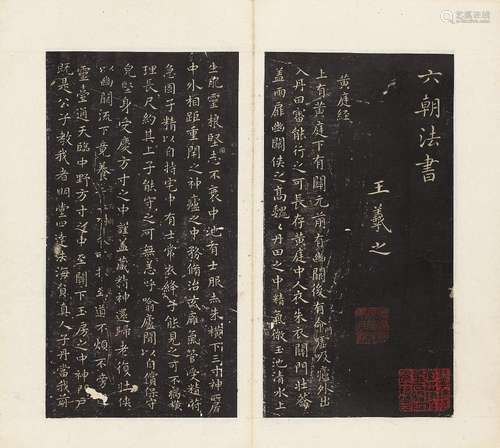 六朝法書
王羲之
黃庭經
上有黃庭下有關元前有幽關後有命噓吸廬外出
入丹田審能行之可長存黃庭中人衣朱衣關門壯籥
蓋兩扉幽關俠之高巍丹田之中精氣微玉池清水上
生肥靈根堅志不衰中池有士服赤朱橫下三寸神所居
中外相距重閉之神廬之中務脩治玄膺氣管受精府
急固子精以自持宅中有士常衣絳子能見之可不病橫
理長尺約其上子能守之可無恙呼噏廬間以自償保守
兒堅身受慶方寸之中謹蓋藏精神還歸老復壯俠
以幽闕流下竟養子不可至道不煩不旁
靈臺通天臨中野方寸之中至關下玉房之中神門戶
既是公子教我者明堂四達法海員真人子丹當我前